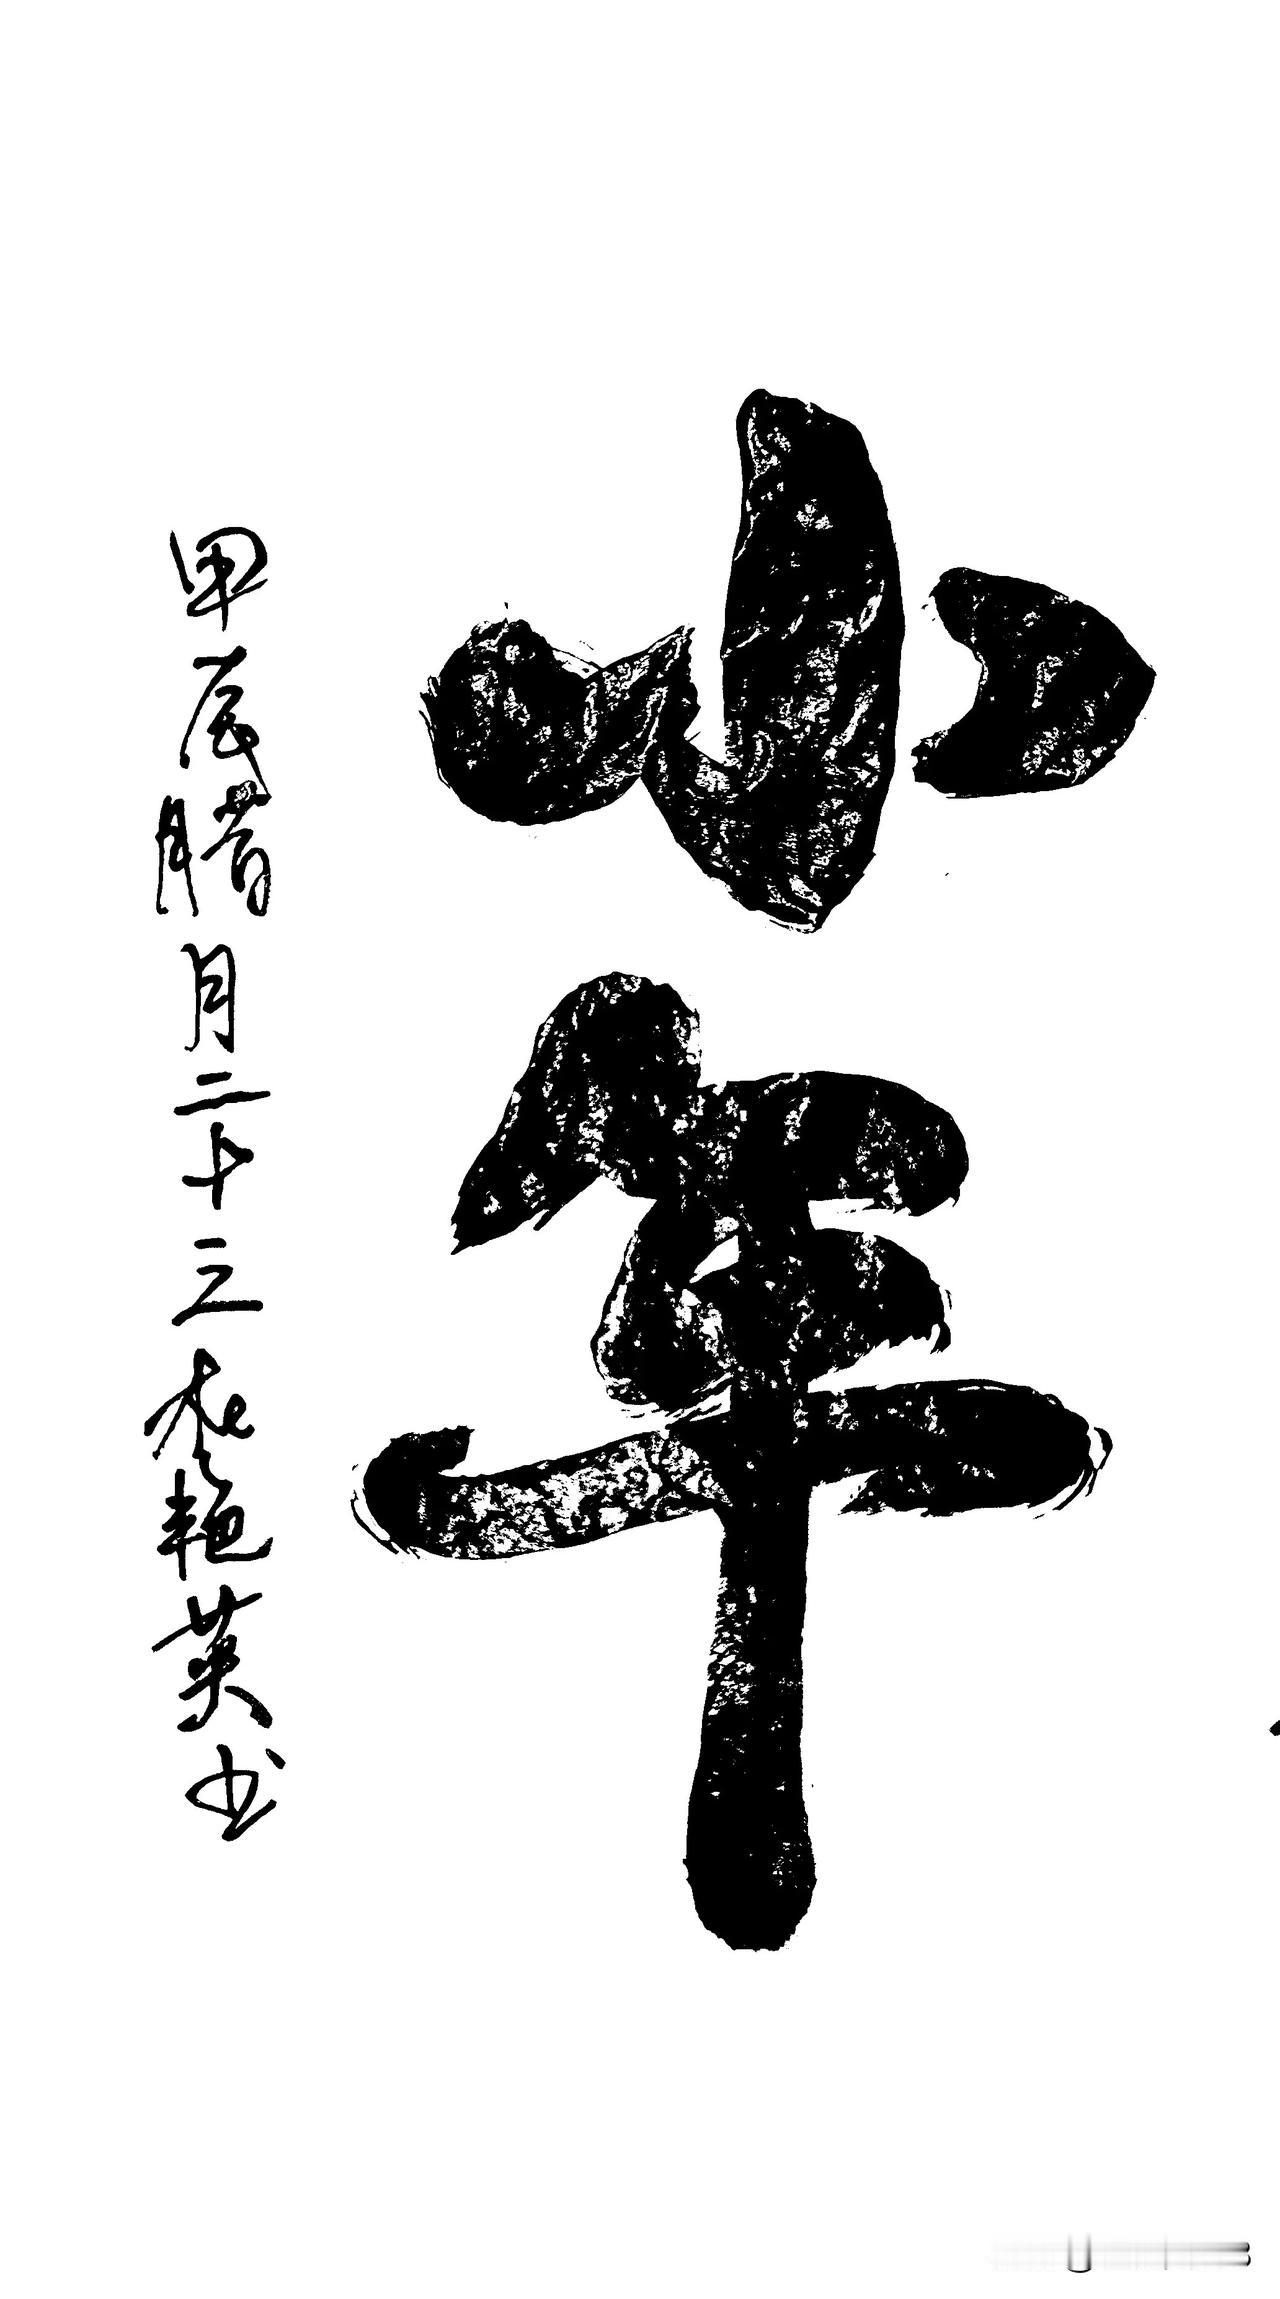 小年
甲辰腊月二十三艳英书